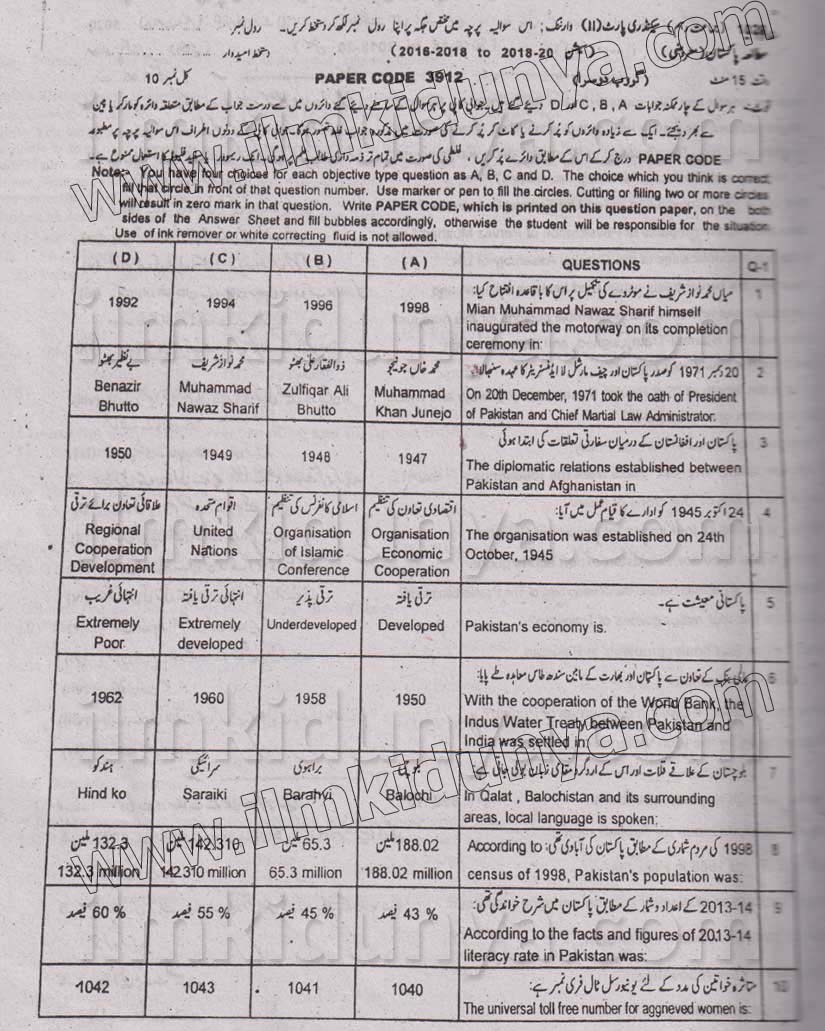 وارننگ: اس سوالیہ پرچہ میں مختص جگہ پر اپنا رول نمبر لکھ کر دستخط کریں۔ رول نمبر
سیکنڈری پارٹ (II)
(2016-2018 to 2018-20) دستخط امیدوار
وقت 15 منٹ PAPER CODE 3912 کل نمبر 10
PAPER CODE
Note:- You have four choices for each objective type question as A, B, C and D. The choice which you think is correct,
fill that circle in front of that question number. Use marker or pen to fill the circles. Cutting or filling two or more circles
will result in zero mark in that question. Write PAPER CODE, which is printed on this question paper, on the both
sides of the Answer Sheet and fill bubbles accordingly, otherwise the student will be responsible for the situation
Use of ink remover or white correcting fluid is not allowed.
( D ) ( C ) ( B ) ( A ) QUESTIONS Q-1
میاں محمد نواز شریف نے موٹروے کی تکمیل پر اس کا باقاعدہ افتتاح کیا: 1
1992 1994 1996 1998 Mian Muhammad Nawaz Sharif himself
inaugurated the motorway on its completion
ceremony in:
بے نظیر بھٹو محمد نواز شریف ذوالفقار علی بھٹو محمد خاں جونیجو 20 دسمبر 1971 کو صدر پاکستان اور چیف مارشل لا ایڈمنسٹریٹر کا عہدہ سنبھالا: 2
Benazir Muhammad Zulfiqar Ali Muhammad On 20th December, 1971 took the oath of President
Bhutto Nawaz Sharif Bhutto Khan Junejo of Pakistan and Chief Martial Law Administrator.
پاکستان اور افغانستان کے درمیان سفارتی تعلقات کی ابتدا ہوئی 3
1950 1949 1948 1947 The diplomatic relations established between
Pakistan and Afghanistan in
علاقائی تعاون برائے ترقی اقوام متحدہ اسلامی کانفرنس کی تنظیم اقتصادی تعاون کی تنظیم 24 اکتوبر 1945 کو ادارے کا قیام عمل میں آیا: 4
Regional United Organisation Organisation The organisation was established on 24th
Cooperation Nations of Islamic Economic October, 1945
Development Conference Cooperation
انتہائی غریب انتہائی ترقی یافتہ ترقی پذیر ترقی یافتہ پاکستانی معیشت ہے۔ 5
Extremely Extremely Underdeveloped Developed Pakistan's economy is.
Poor developed
عالمی بینک کے تعاون سے پاکستان اور بھارت کے مابین سندھ طاس معاہدہ طے پایا: 6
1962 1960 1958 1950 With the cooperation of the World Bank, the
Indus Water Treaty between Pakistan and
India was settled in:
ہندکو سرائیکی براہوی بلوچی بلوچستان کے علاقے قلات اور اس کے اردگرد مقامی زبان بولی جاتی ہے: 7
Hind ko Saraiki Barahvi Balochi In Qalat , Balochistan and its surrounding
areas, local language is spoken:
132.3 ملین 142.310 ملین 65.3 ملین 188.02 ملین 1998 کی مردم شماری کے مطابق پاکستان کی آبادی تھی: According to 8
132.3 million 142.310 million 65.3 million 188.02 million census of 1998, Pakistan's population was:
60 % فیصد 55 % فیصد 45 % فیصد 43 % فیصد 2013-14 کے اعداد و شمار کے مطابق پاکستان میں شرح خواندگی تھی: 9
According to the facts and figures of 2013-14
literacy rate in Pakistan was:
1042 1043 1041 1040 متاثرہ خواتین کی مدد کے لئے یونیورسل ٹال فری نمبر ہے: 10
The universal toll free number for aggrieved women is:
www.ilmkidunya.com
www.ilmkidunya.com
ilmkidunya.com